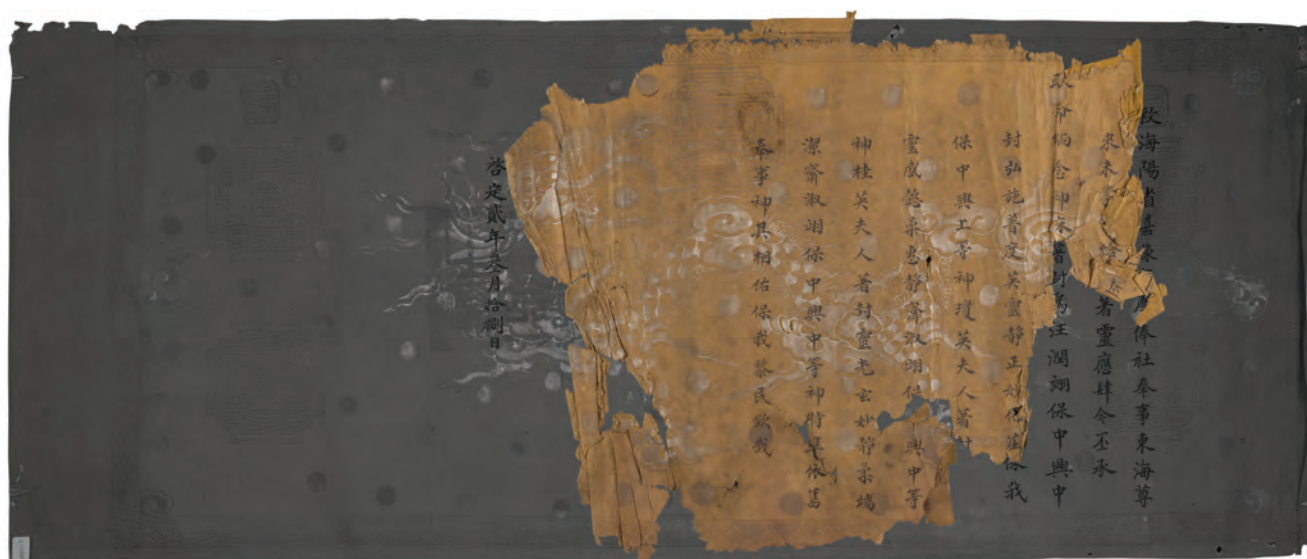 敕海陽省嘉 俸社奉事東海尊
求奉事 著靈應肆今丕承
耿命緬念神庥著封為汪潤翊保中興中
封弘施普度英靈靜正妙 莊徽我
保中興上等神瓊英夫人著封
靈感慈柔惠靜齋淑翊保 興中等
神桂英夫人著封靈 玄妙靜柔端
潔齋淑翊保中興中等神特準依舊
奉事神其相佑保我黎民欽哉
啓定貳年叁月拾捌日